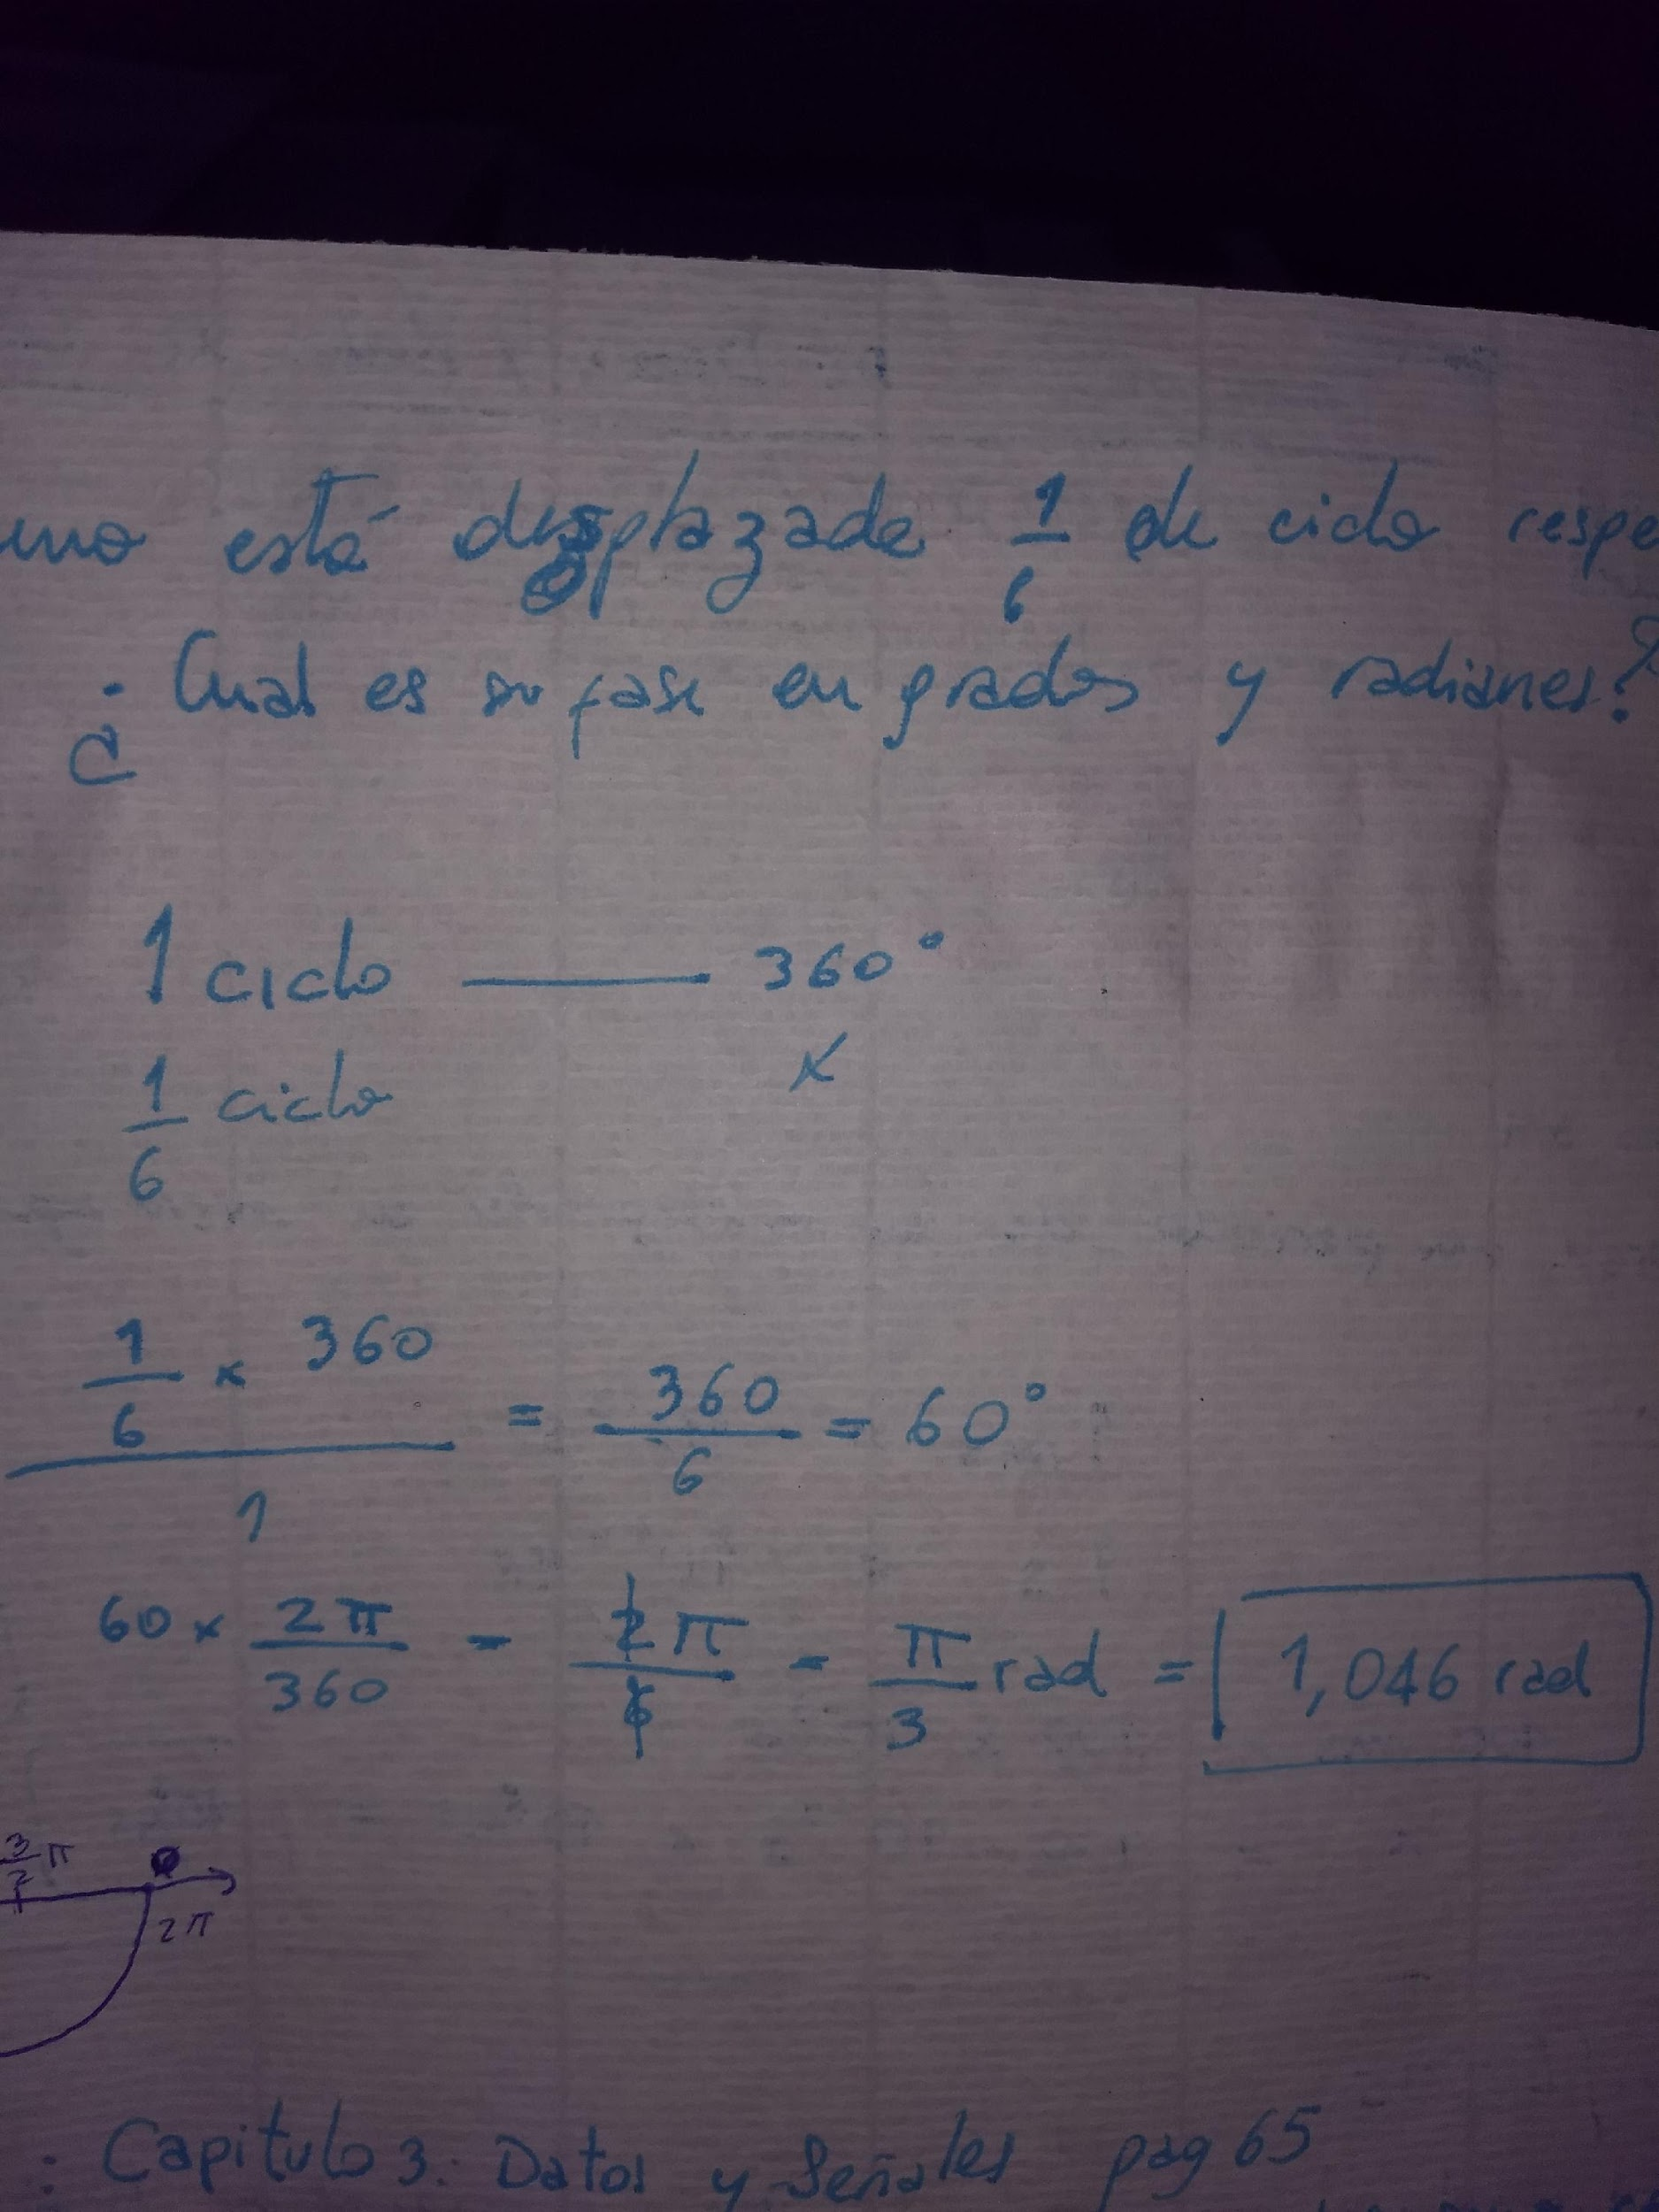 está desplazada 1/6 de ciclo
¿Cual es su fase en grados y radianes?
1 ciclo — 360°
1/6 ciclo x
1/6 x 360 / 1 = 360/6 = 60°
60 x 2π/360 = 2π/6 = π/3 rad = 1,046 rad
3/2 π
2π
Capitulo 3: Datos y Señales pag 65